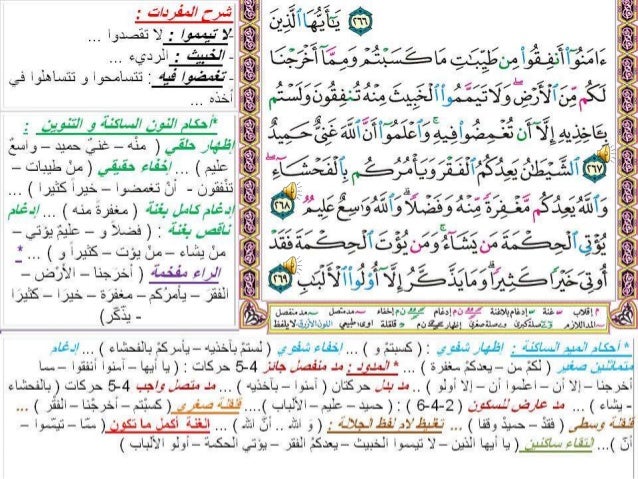 شرح المفردات :
-لا تيمموا : لا تقصدوا ...
- الخبيث : الرديء ...
- تغمضوا فيه : تتسامحوا و تتساهلوا في
أخذه ...
*أحكام النون الساكنة و التنوين :
إظهار حلقي ( منْه – غنيٌ حميد – واسعٌ
عليم ) ... إخفاء حقيقي ( منْ طيبات –
تنْفقون - أنْ تغمضوا – خيراً كثيرا ) ...
إدغام كامل بغنة ( مغفرةً منه ) ... إدغام
ناقص بغنة : ( فضلاً و – عليمٌ يؤتي –
منْ يشاء – منْ يؤت – كثيراً و ) ... *
الراء مفخمة ( أخرجنا – الأرْض –
الفقرَ – يأمرُكم – مغفرَة – خيرَا – كثيرَا
- يذّكّر)
٢٦٦ يَٰٓأَيُّهَا ٱلَّذِينَ
ءَامَنُوٓا۟ أَنفِقُوا۟ مِن طَيِّبَٰتِ مَا كَسَبْتُمْ وَمِمَّآ أَخْرَجْنَا
لَكُم مِّنَ ٱلْأَرْضِ ۖ وَلَا تَيَمَّمُوا۟ ٱلْخَبِيثَ مِنْهُ تُنفِقُونَ وَلَسْتُم
بِـَٔاخِذِيهِ إِلَّآ أَن تُغْمِضُوا۟ فِيهِ ۚ وَٱعْلَمُوٓا۟ أَنَّ ٱللَّهَ غَنِىٌّ حَمِيدٌ
٢٦٧ ٱلشَّيْطَٰنُ يَعِدُكُمُ ٱلْفَقْرَ وَيَأْمُرُكُم بِٱلْفَحْشَآءِ ۖ
وَٱللَّهُ يَعِدُكُم مَّغْفِرَةً مِّنْهُ وَفَضْلًا ۗ وَٱللَّهُ وَٰسِعٌ عَلِيمٌ ٢٦٨
يُؤْتِى ٱلْحِكْمَةَ مَن يَشَآءُ ۚ وَمَن يُؤْتَ ٱلْحِكْمَةَ فَقَدْ
أُوتِىَ خَيْرًا كَثِيرًا ۗ وَمَا يَذَّكَّرُ إِلَّآ أُو۟لُوا۟ ٱلْأَلْبَٰبِ ٢٦٩
* أحكام الميم الساكنة : إظهار شفوي : ( كسبتمْ و ) ... إخفاء شفوي ( لستمْ بآخذيه – يأمركمْ بالفحشاء ) ... إدغام
متماثلين صغير ( لكمْ من – يعدكمْ مغفرة ) ... * المدود : مد منفصل جائز 4-5 حركات : ( يا أيها – آمنوا أنفقوا – مما
أخرجنا – إلا أن – اعلموا أن – إلا أولو ) ... مد بدل حركتان ( آمنوا – بآخذيه ) ... مد متصل واجب 4-5 حركات ( بالفحشاء
- يشاء ) ... مد عارض للسكون ( 2-4-6 ) : ( حميد – عليم – الألباب ) .... قلقلة صغرى ( كسبْتم – أخرجْنا – الفقْر ) ...
قلقلة وسطى ( فقدْ – حميدْ وقفا ) ... تغليظ لام لفظ الجلالة : ( وَ الله .. أنَّ الله ) ... الغنة أكمل ما تكون ( ممّا – تيمّموا –
أنّ ) ... التقاء ساكنين ( يا أيها الذين – لا تيمموا الخبيث – يعدكمُ الفقر – يؤتي الحكمة – أولو الألباب )